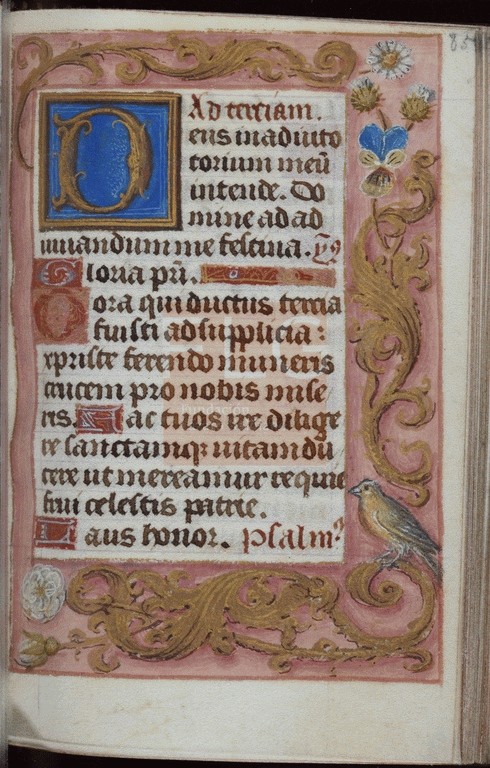 85
Ad terciam.
Deus in adiuto
torium meū
intende. Do
mine ad ad
iuuandum me festina. ps
Gloria pri.
Qora qui ductus tercia
fuisti ad supplicia:
xpriste ferendo humeris
crucem pro nobis mise
ris. Fac tuos ire dilige
re sanctamq; uitam du
cere ut mereamur requie
frui celestis patrie.
Laus honor. Psalm9